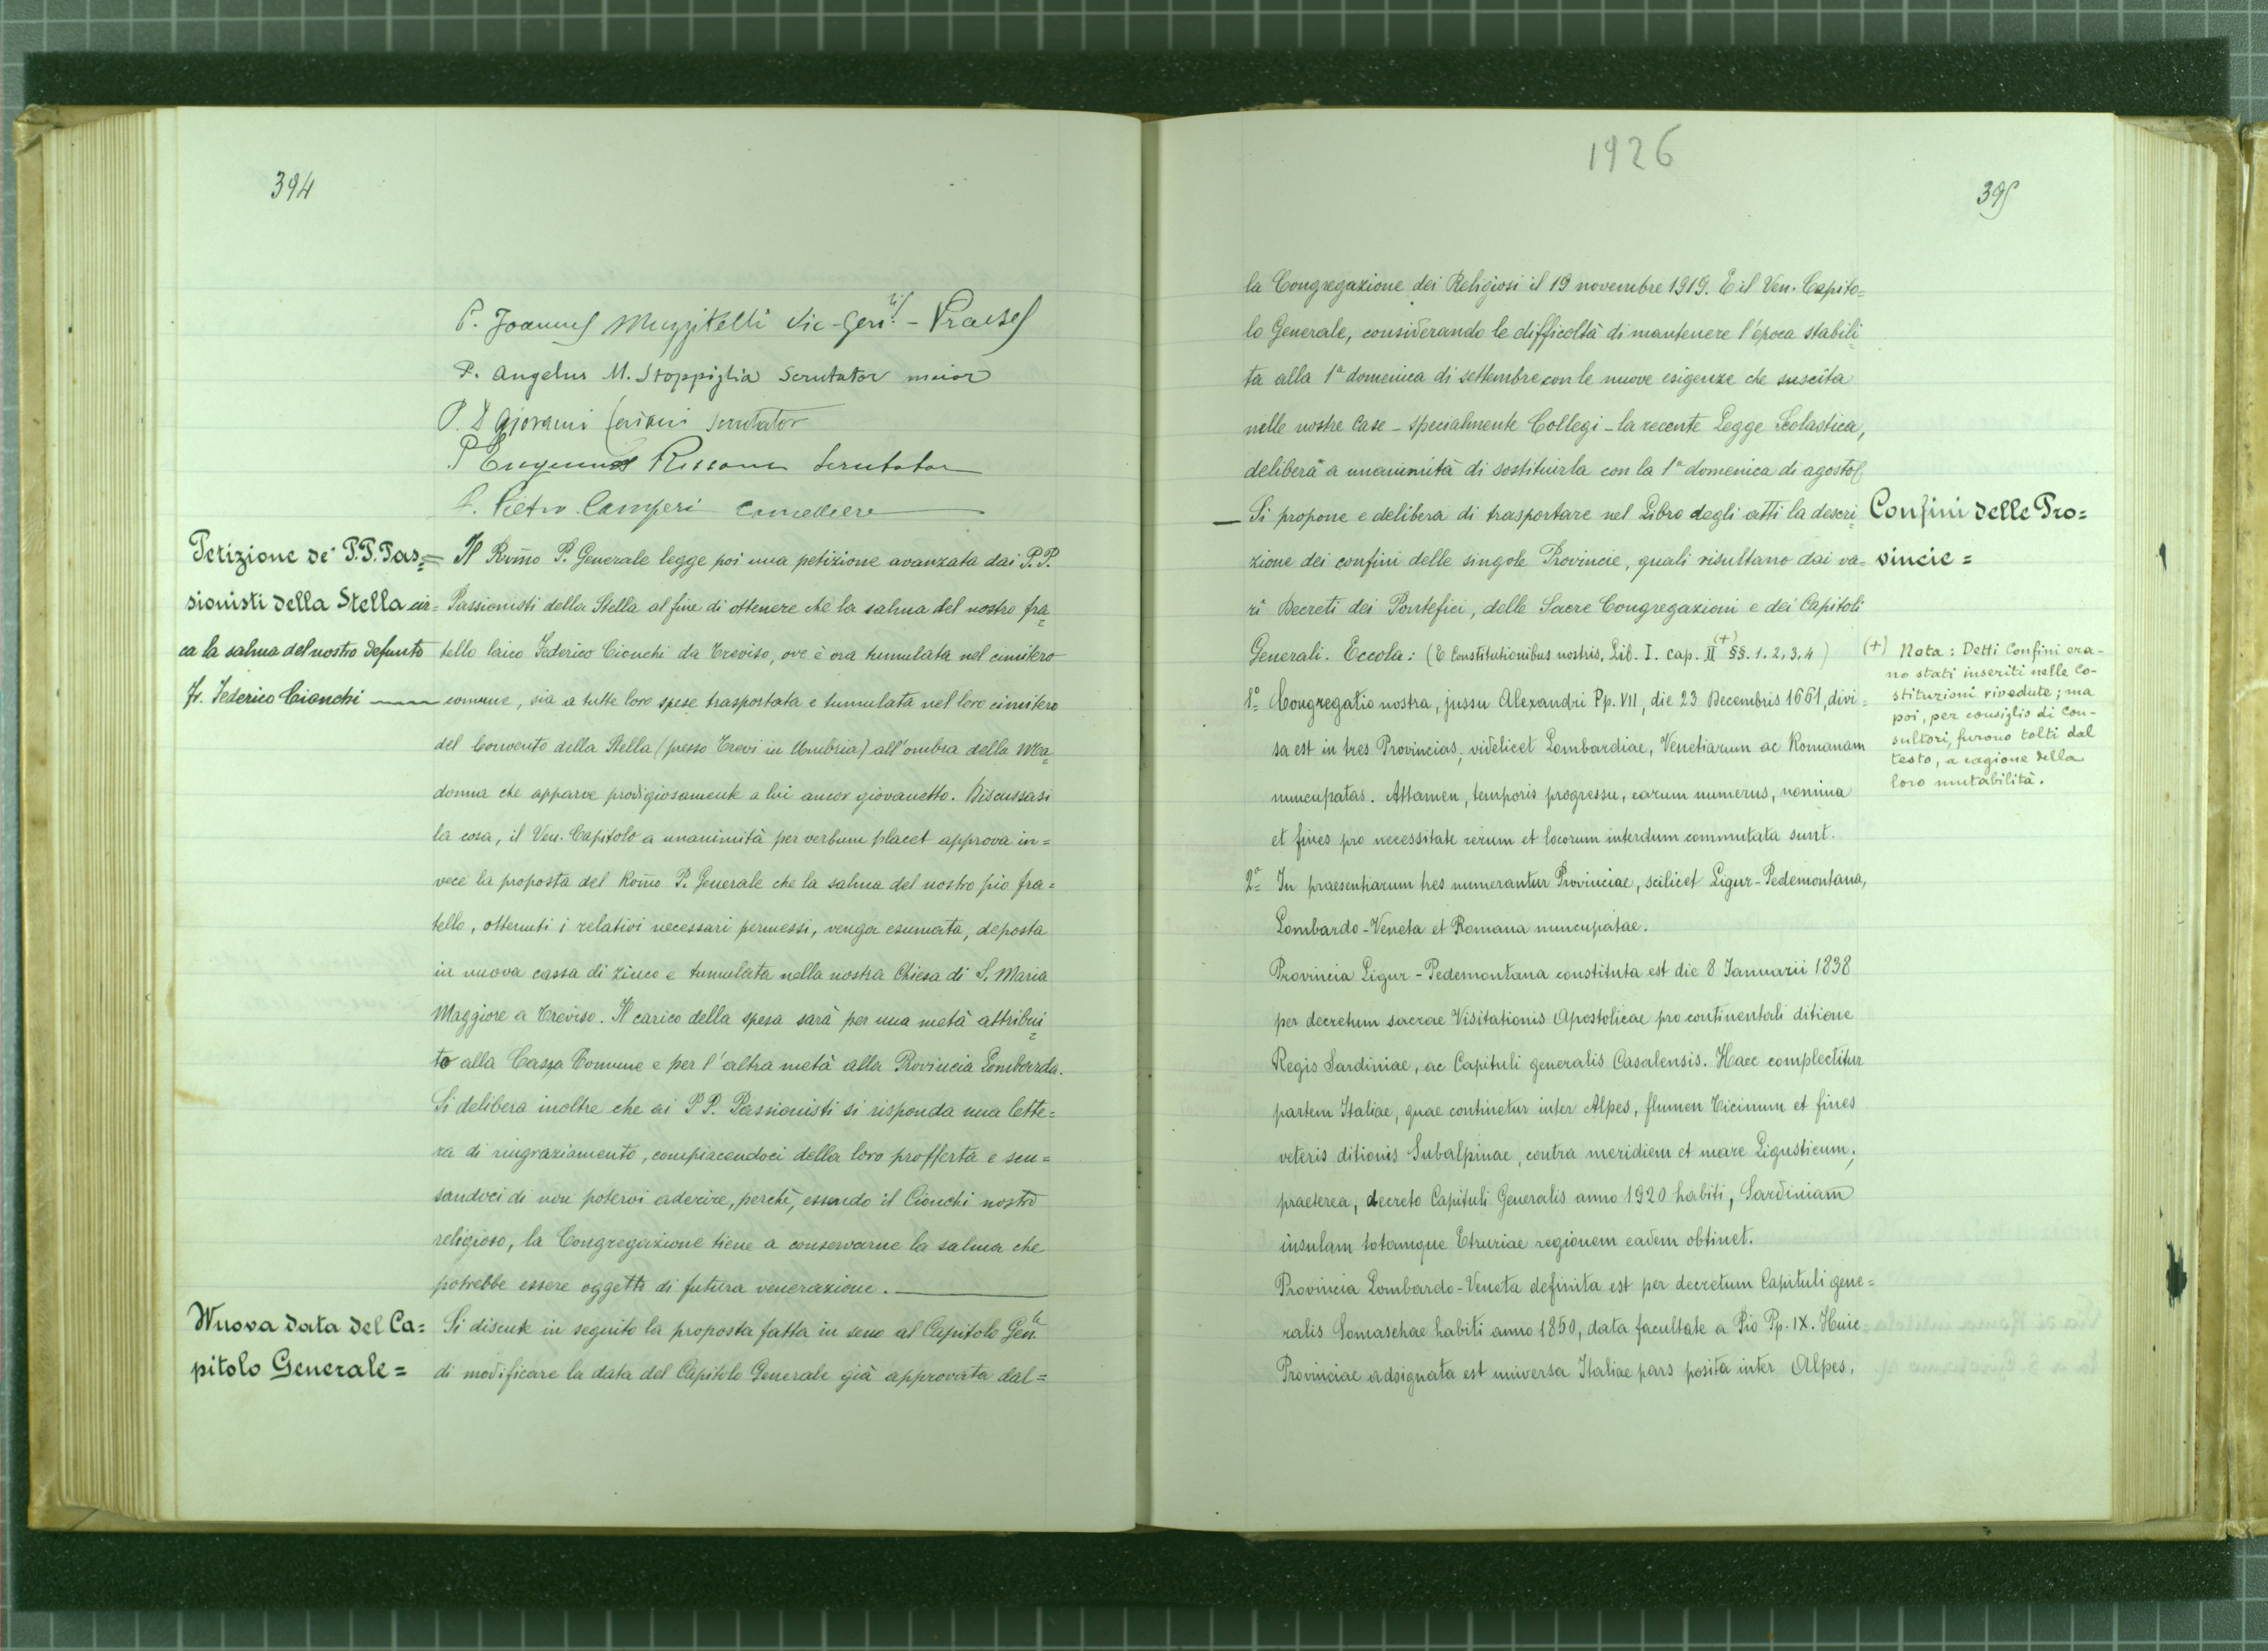 394
P. Joannes Muzzitelli Vic-Gen.lis - Praeses
P. Angelus M. Stoppiglia Scrutator maior
P. D Giovanni Ceriani scrutator
P Eugenius Rissone Scrutator
P. Pietro Camperi Cancelliere
Petizione de' P.P. Pas=
sionisti della Stella cir=
ca la salma del nostro defunto
Fr. Federico Cionchi
Il Rm̃o P. Generale legge poi una petizione avanzata dai P.P.
Passionisti della Stella al fine di ottenere che la salma del nostro fra=
tello laico Federico Cionchi da Treviso, ove è ora tumulata nel cimitero
comune, sia a tutte loro spese trasportata e tumulata nel loro cimitero
del Convento della Stella (presso Trevi in Umbria) all'ombra della Ma=
donna che apparve prodigiosamente a lui ancor giovanetto. Discussasi
la cosa, il Ven. Capitolo a unanimità per verbum placet approva in=
vece la proposta del Rom̃o P. Generale che la salma del nostro pio fra=
tello, ottenuti i relativi necessari permessi, venga esumata, deposta
in nuova cassa di zinco e tumulata nella nostra Chiesa di S. Maria
Maggiore a Treviso. Il carico della spesa sarà per una metà attribui=
to alla Cassa Comune e per l'altra metà alla Provincia Lombarda.
Si delibera inoltre che ai P P. Passionisti si risponda una lette=
ra di ringraziamento, compiacendoci della loro profferta e scu=
sandoci di non potervi aderire, perchè, essendo il Cionchi nostro
religioso, la Congregazione tiene a conservarne la salma che
potrebbe essere oggetto di futura venerazione.
Nuova data del Ca=
pitolo Generale=
Si discute in seguito la proposta fatta in seno al Capitolo Gen.le
di modificare la data del Capitolo Generale già approvata dal=
1926
395
la Congregazione dei Religiosi il 19 novembre 1919. E il Ven. Capito=
lo Generale, considerando le difficoltà di mantenere l'epoca stabili=
ta alla 1ª domenica di settembre con le nuove esigenze che suscita
nelle nostre Case - specialmente Collegi - la recente Legge Scolastica,
delibera a unanimità di sostituirla con la 1ª domenica di agosto
— Si propone e delibera di trasportare nel Libro degli atti la descri=
zione dei confini delle singole Provincie, quali risultano dai va=
ri Decreti dei Pontefici, delle Sacre Congregazioni e dei Capitoli
Generali. Eccola: (E Constitutionibus nostris, Lib. I. cap. II (+) §§. 1. 2, 3, 4)
Confini delle Pro=
vincie =
(+) Nota: Detti Confini era-
no stati inseriti nelle Co-
stituzioni rivedute; ma
poi, per consiglio di Con-
sultori, furono tolti dal
testo, a cagione della
loro mutabilità.
1º= Congregatio nostra, jussu Alexandri Pp. VII, die 23 Decembris 1661, divi=
sa est in tres Provincias, videlicet Lombardiae, Venetiarum ac Romanam
nuncupatas. Attamen, temporis progressu, earum numerus, nomina
et fines pro necessitate rerum et locorum interdum commutata sunt.
2º= In praesentiarum tres numerantur Provinciae, scilicet Ligur-Pedemontana,
Lombardo-Veneta et Romana nuncupatae.
Provincia Ligur-Pedemontana constituta est die 8 Januarii 1838
per decretum sacrae Visitationis Apostolicae pro continentali ditione
Regis Sardiniae, ac Capituli generalis Casalensis. Haec complectitur
partem Italiae, quae continetur inter Alpes, flumen Ticinum et fines
veteris ditionis Subalpinae, contra meridiem et mare Ligusticum;
praeterea, decreto Capituli Generalis anno 1920 habiti, Sardiniam
insulam totamque Etruriae regionem eadem obtinet.
Provincia Lombardo-Veneta definita est per decretum Capituli gene=
ralis Somaschae habiti anno 1850, data facultate a Pio Pp. IX. Huic
Provinciae adsignata est universa Italiae pars posita inter Alpes,